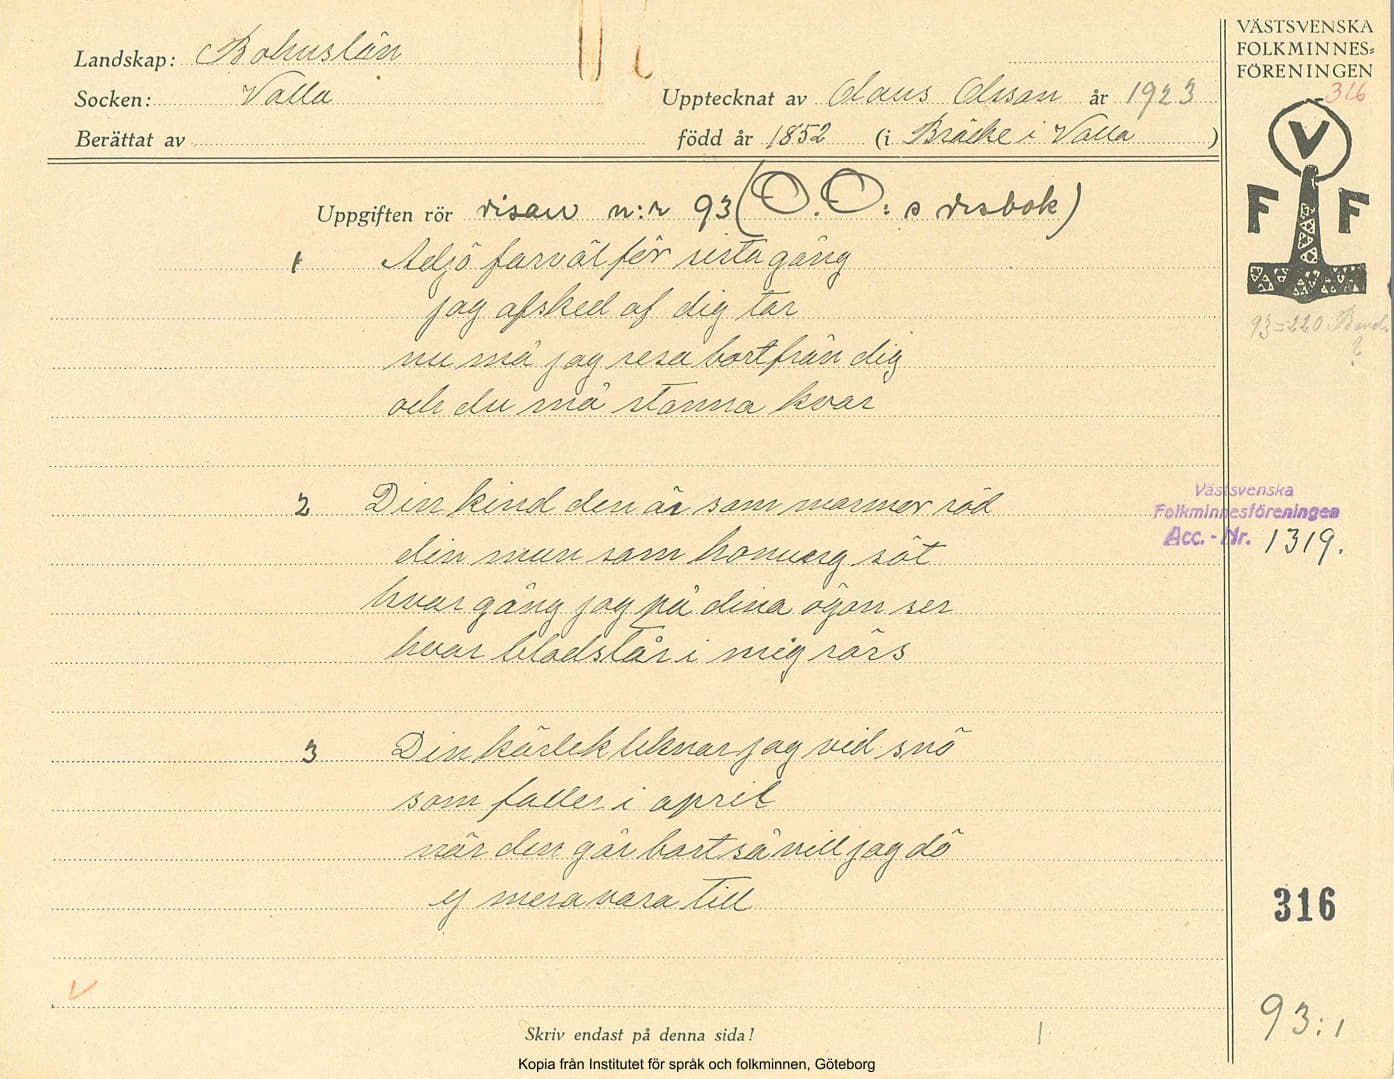 Landskap: Bohuslän
Socken: Valla
Berättat av
Upptecknat av Olaus Olsson år 1923
född år 1852 (i Bräcke i Valla)
VÄSTSVENSKA
FOLKMINNES=
FÖRENINGEN
316
V
F F
93=220
?
Uppgiften rör visan n:r 93 (O.O:s visbok)
1 Adjö farväl för sista gång
jag afsked af dig tar
nu må jag resa bort från dig
och du må stanna kvar
2 Din kind den är som marmor röd
din mun som honung söt
hvar gång jag på dina ögon ser
hvar blodstår i mig rörs
3 Din kärlek liknar jag vid snö
som faller i april
när den går bort så vill jag dö
ej mera vara till
Västsvenska
Folkminnesföreningen
Acc.-Nr. 1319.
316
93:1
Skriv endast på denna sida!
Kopia från Institutet för språk och folkminnen, Göteborg